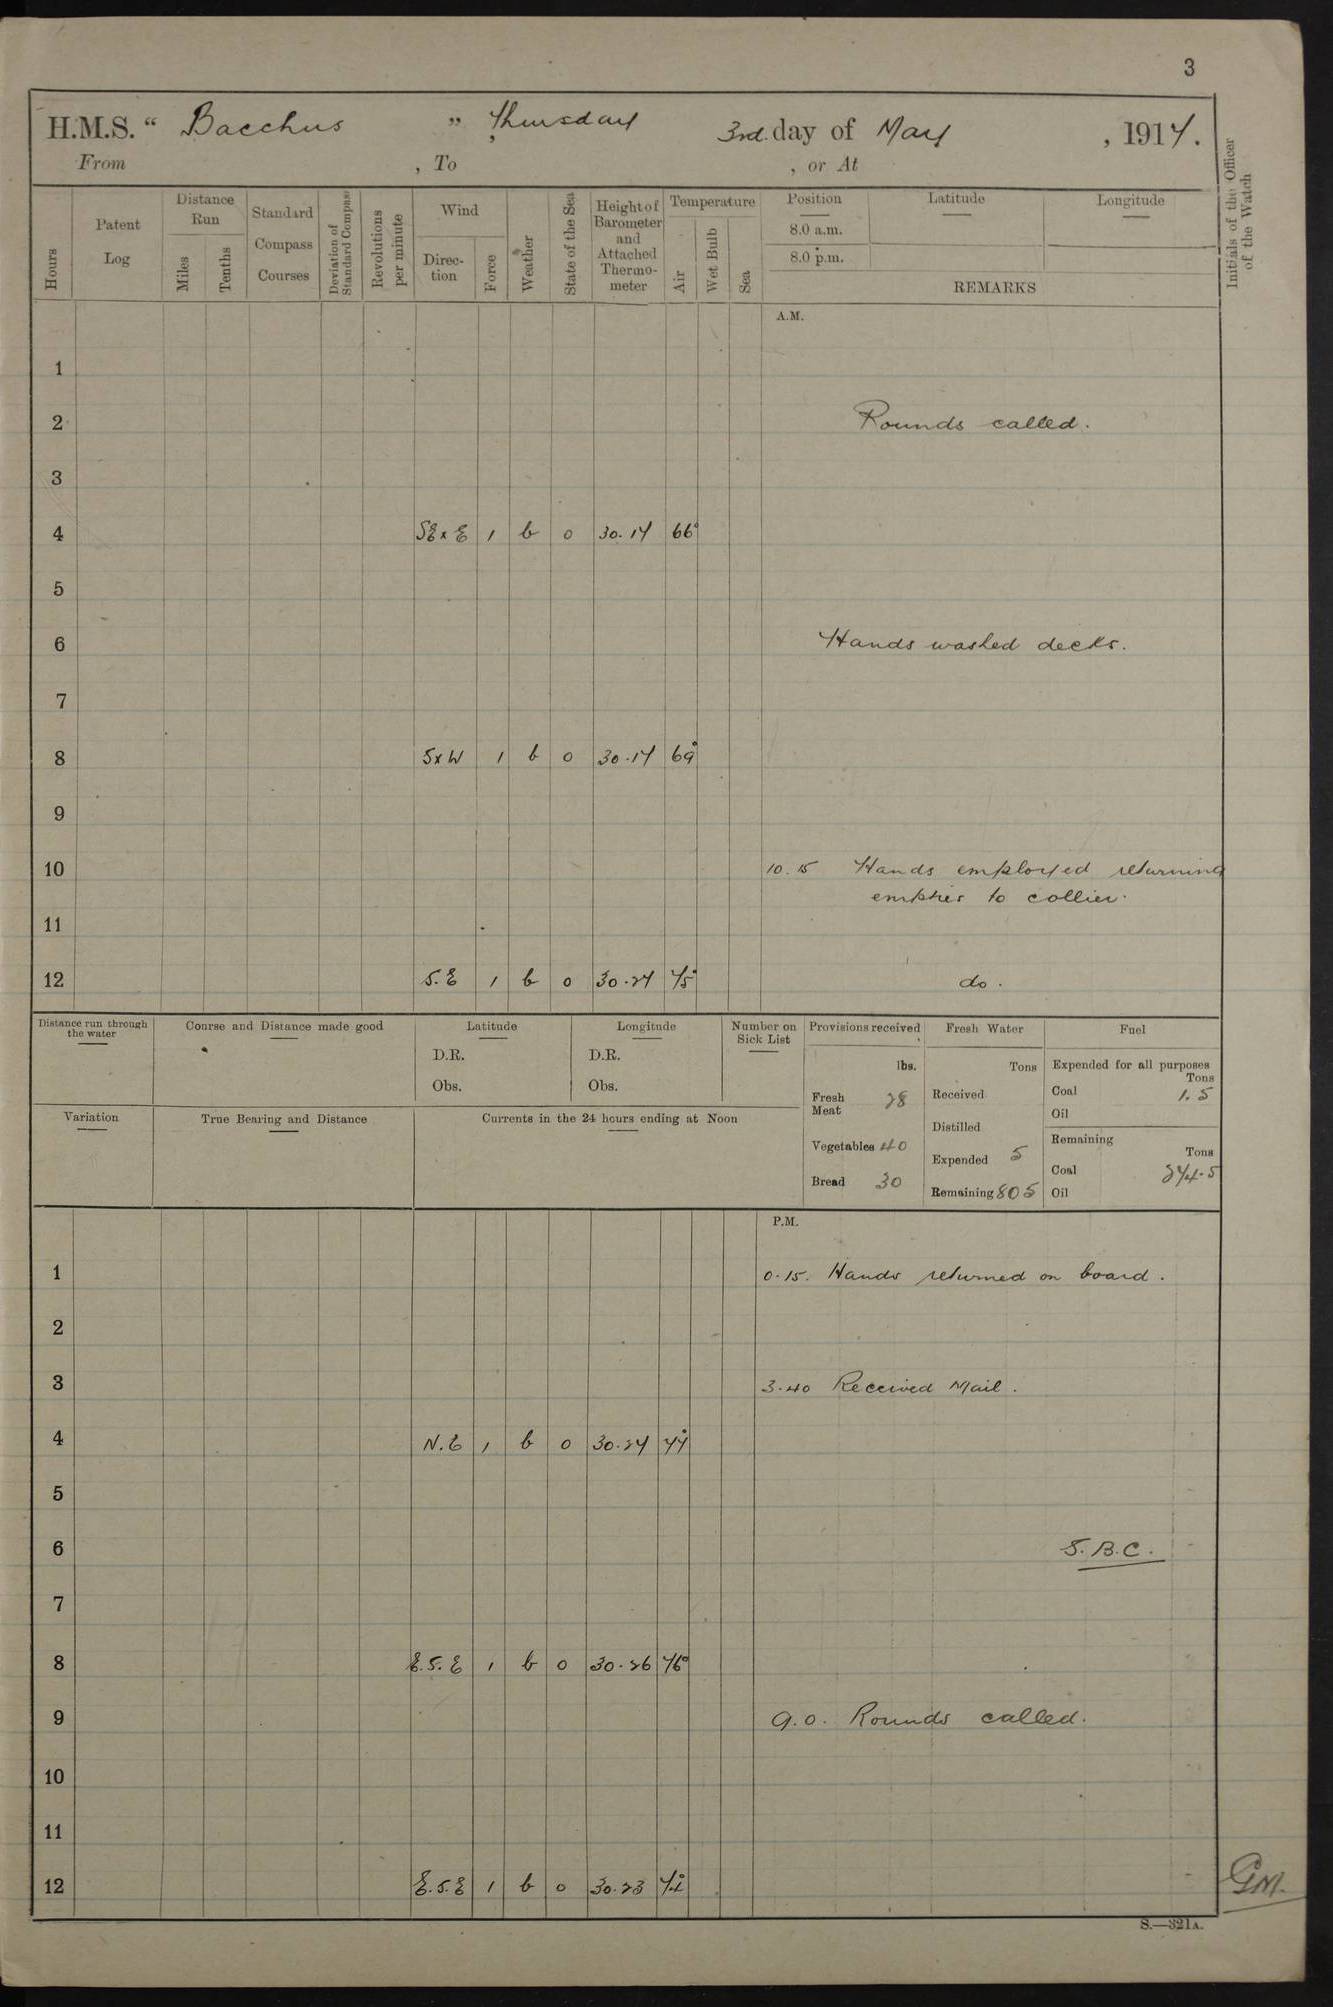 3
H.M.S. “ Bacchus ” Thursday, 3rd. day of May, 1917.
From , To , or At
Hours
Patent Log
Distance Run
Miles
Tenths
Standard Compass Courses
Deviation of Standard Compass
Revolutions per minute
Wind
Direc-tion
Force
Weather
State of the Sea
Height of Barometer and Attached Thermo-meter
Temperature
Air
Wet Bulb
Sea
Position Latitude Longitude
8.0 a.m.
8.0 p.m.
REMARKS
Initials of the Officer of the Watch
A.M.
1
2 Rounds called.
3
4 SE x E 1 b 0 30.17 66°
5
6 Hands washed decks.
7
8 S x W 1 b 0 30.17 69°
9
10 10.15 Hands employed returning
empties to collier.
11
12 S.E 1 b 0 30.27 75° do.
Distance run through the water
Course and Distance made good
Latitude
D.R.
Obs.
Longitude
D.R.
Obs.
Number on Sick List
Provisions received
lbs.
Fresh Meat 28
Vegetables 40
Bread 30
Fresh Water
Tons
Received
Distilled
Expended 5
Remaining 805
Fuel
Expended for all purposes
Tons
Coal 1.5
Oil
Remaining
Tons
Coal 274.5
Oil
Variation
True Bearing and Distance
Currents in the 24 hours ending at Noon
P.M.
1 0.15. Hands returned on board.
2
3 3.40 Received Mail.
4 N.E 1 b 0 30.27 77°
5
6 S.B.C.
7
8 E.S.E 1 b 0 30.26 76°
9 9.0. Rounds called.
10
11
12 E.S.E 1 b 0 30.23
GM.
S.—321A.